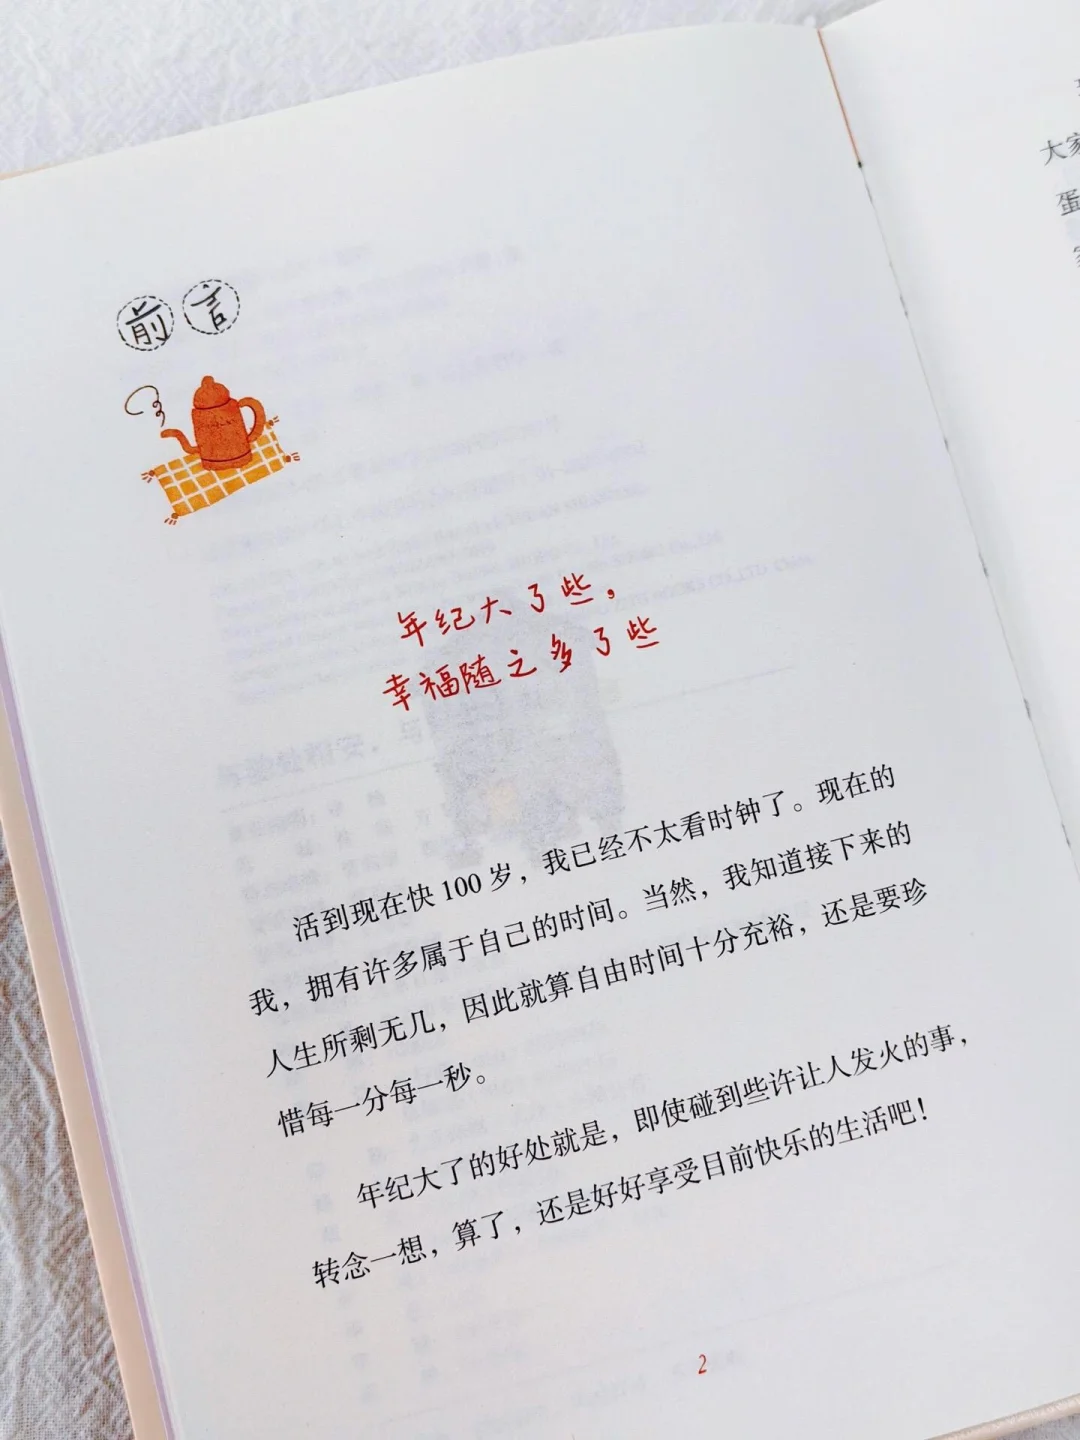 前言
年纪大了些，
幸福随之多了些
活到现在快100岁，我已经不太看时钟了。现在的
我，拥有许多属于自己的时间。当然，我知道接下来的
人生所剩无几，因此就算自由时间十分充裕，还是要珍
惜每一分每一秒。
年纪大了的好处就是，即使碰到些许让人发火的事，
转念一想，算了，还是好好享受目前快乐的生活吧！
2
大家
蛋